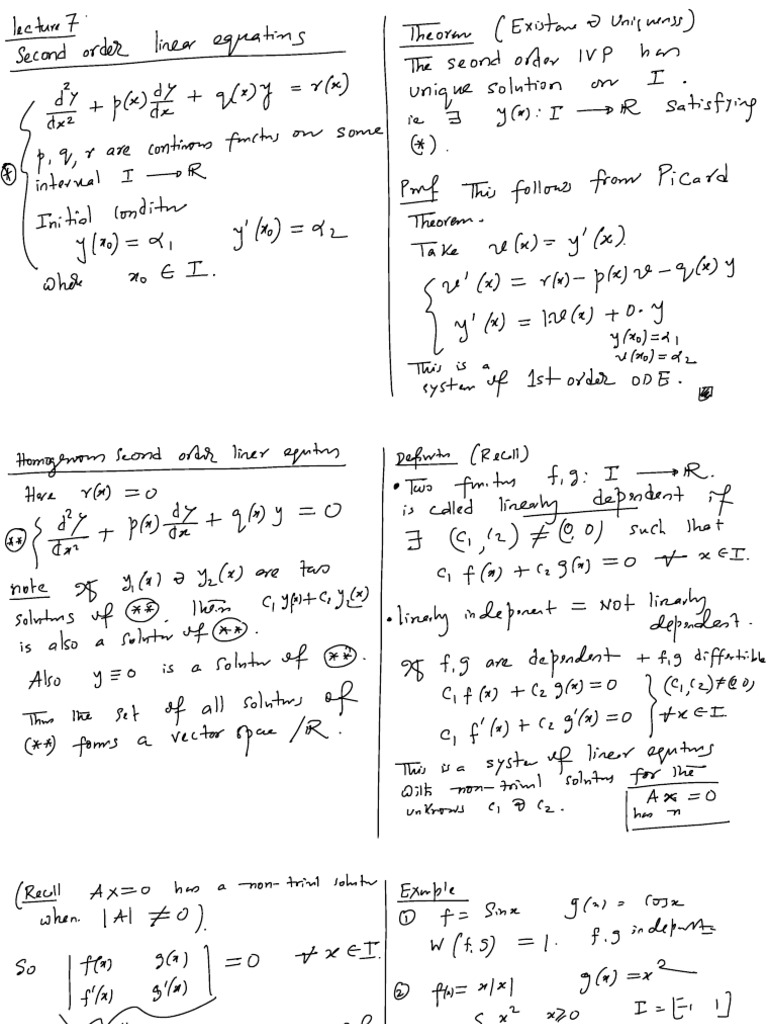 lecture 7
Second order linear equations
d²y/dx² + p(x) dy/dx + q(x) y = r(x)
p, q, r are continous functns on some
interval I → ℝ
Initial conditn
y(x₀) = α₁ y'(x₀) = α₂
where x₀ ∈ I.
(*)
Theorem (Existane & Uniqunss)
The seond order IVP has
unique solution on I.
ie ∃ y(x): I → ℝ satisfying
(*).
Prf This follows from Picard
Theorem.
Take v(x) = y'(x).
v'(x) = r(x) - p(x) v - q(x) y
y'(x) = 1.v(x) + 0. y
y(x₀) = α₁
v(x₀) = α₂
This is a
system of 1st order ODE.
Homogenous Second order liner equtns
Here r(x) = 0
(**) { d²y/dx² + p(x) dy/dx + q(x) y = 0
note If y₁(x) & y₂(x) are two
solutns of (**). Then c₁ y₁(x) + c₂ y₂(x)
is also a solutn of (**).
Also y ≡ 0 is a solutn of (**).
Thus the set of all solutns of
(**) forms a vector spae /ℝ.
(Recall)
• Two f, g: I → ℝ.
is called linearly dependent if
∃ (c₁, c₂) ≠ (0, 0) such that
c₁ f(x) + c₂ g(x) = 0 ∀ x ∈ I.
• linearly indeponent = NOT linearly
dependent.
If f, g are dependent + f, g differtible
c₁ f(x) + c₂ g(x) = 0 } (c₁, c₂) ≠ (0, 0)
c₁ f'(x) + c₂ g'(x) = 0 } ∀ x ∈ I
This is a system of linear eqntns
with non-trivil solutns for the
unknows c₁ & c₂.
Ax = 0
has n
(Recall Ax = 0 has a non-trivl solutn
when |A| ≠ 0).
So | f(x) g(x) | = 0 ∀ x ∈ I.
| f'(x) g'(x) |
Exmple
① f = Sinx g(x) = cosx
W(f, g) = 1. f, g indepent
② f(x) = x|x| g(x) = x²
x² x ≥ 0 I = [-1 1]